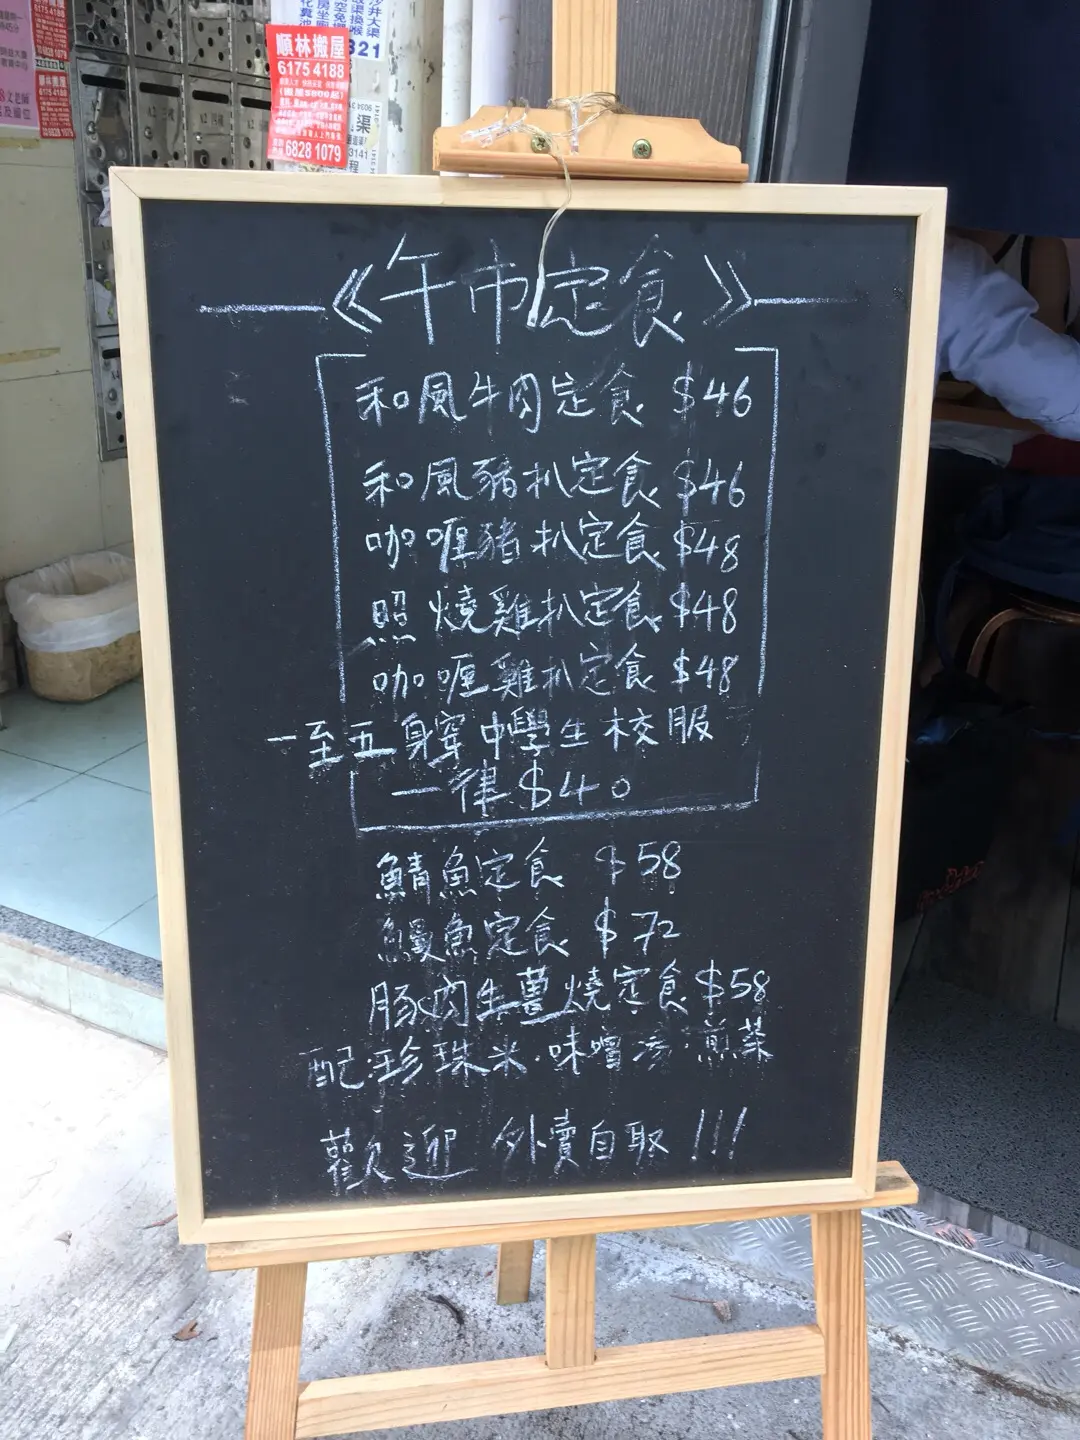 順林搬屋
6175 4188
6828 1079
《午市定食》
和風牛肉定食 $46
和風豬扒定食 $46
咖喱豬扒定食 $48
照燒雞扒定食 $48
咖喱雞扒定食 $48
一至五身穿中學生校服
一律 $40
鯖魚定食 $58
鰻魚定食 $72
豚肉生薑燒定食 $58
配·珍珠米·味噌湯·煎菜
歡迎 外賣自取!!!